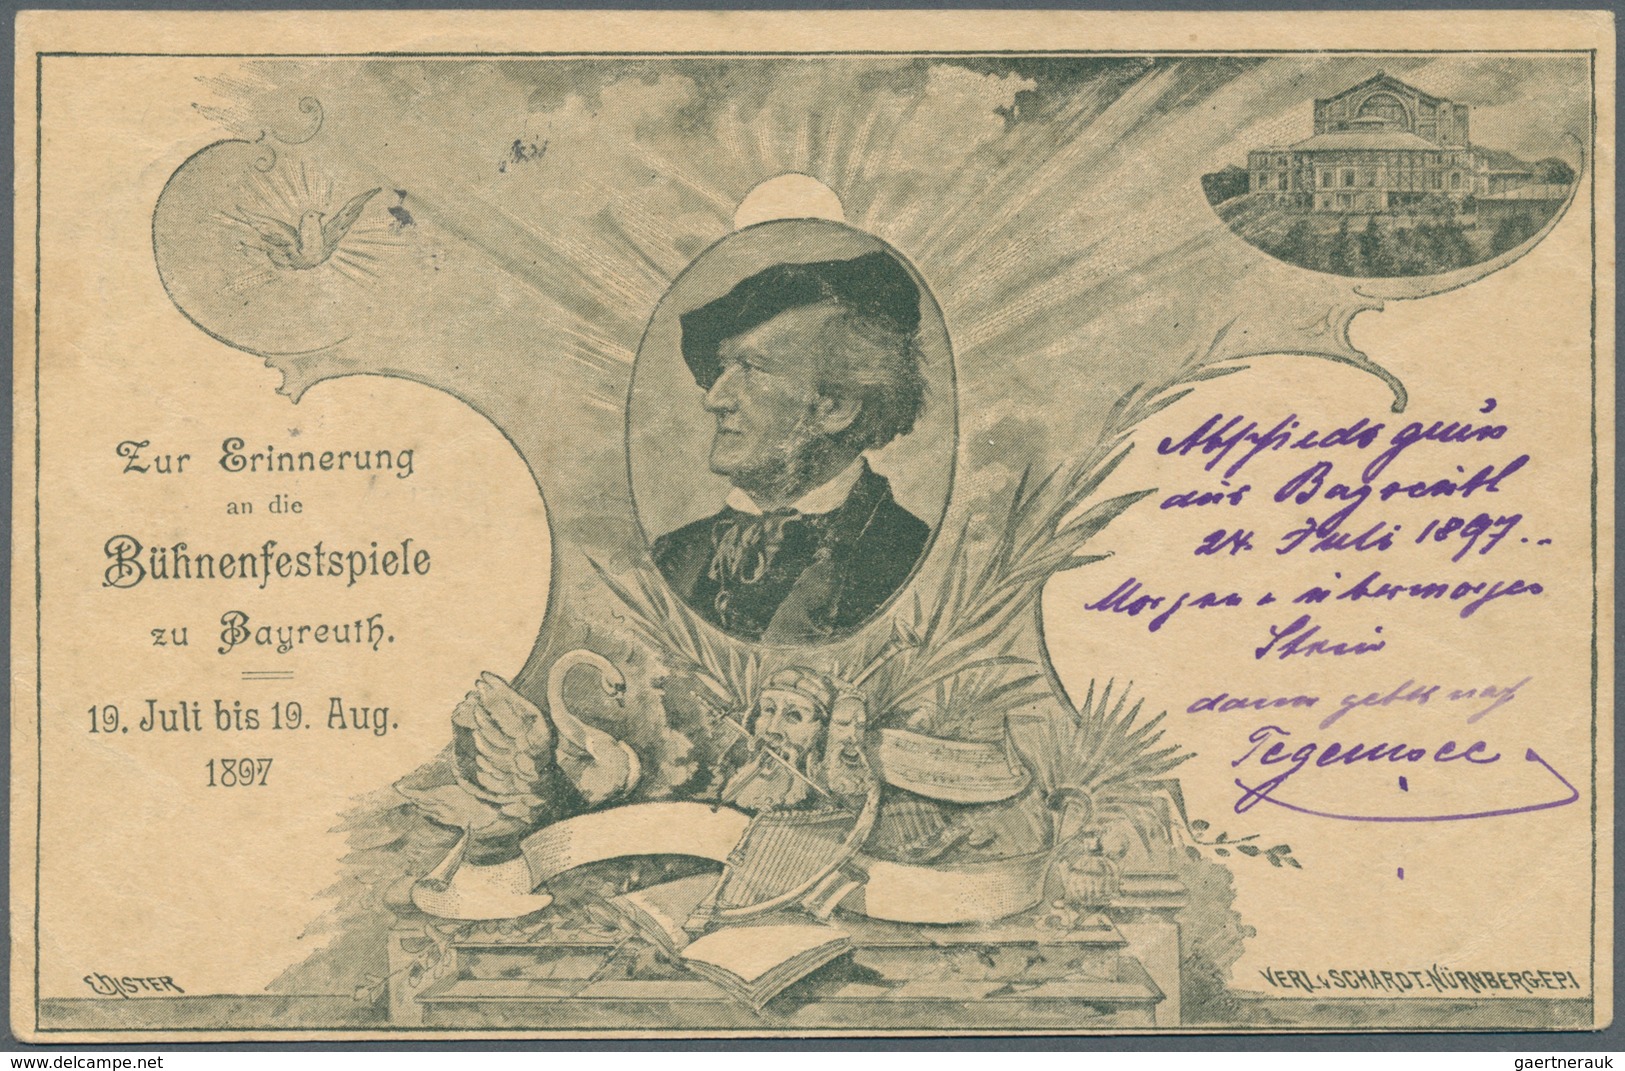 Zur Erinnerung
an die
Bühnenfestspiele
zu Bayreuth.
19. Juli bis 19. Aug.
1897
Abschiedsgruß
aus Bayreuth
24. Juli 1897..
Morgen u übermorgen
Stein
dann geht's nach
Tegernsee
E. DISTER
VERL. v SCHARDT-NÜRNBERG. EP. 1
www.delcampe.net
gaertnerauk